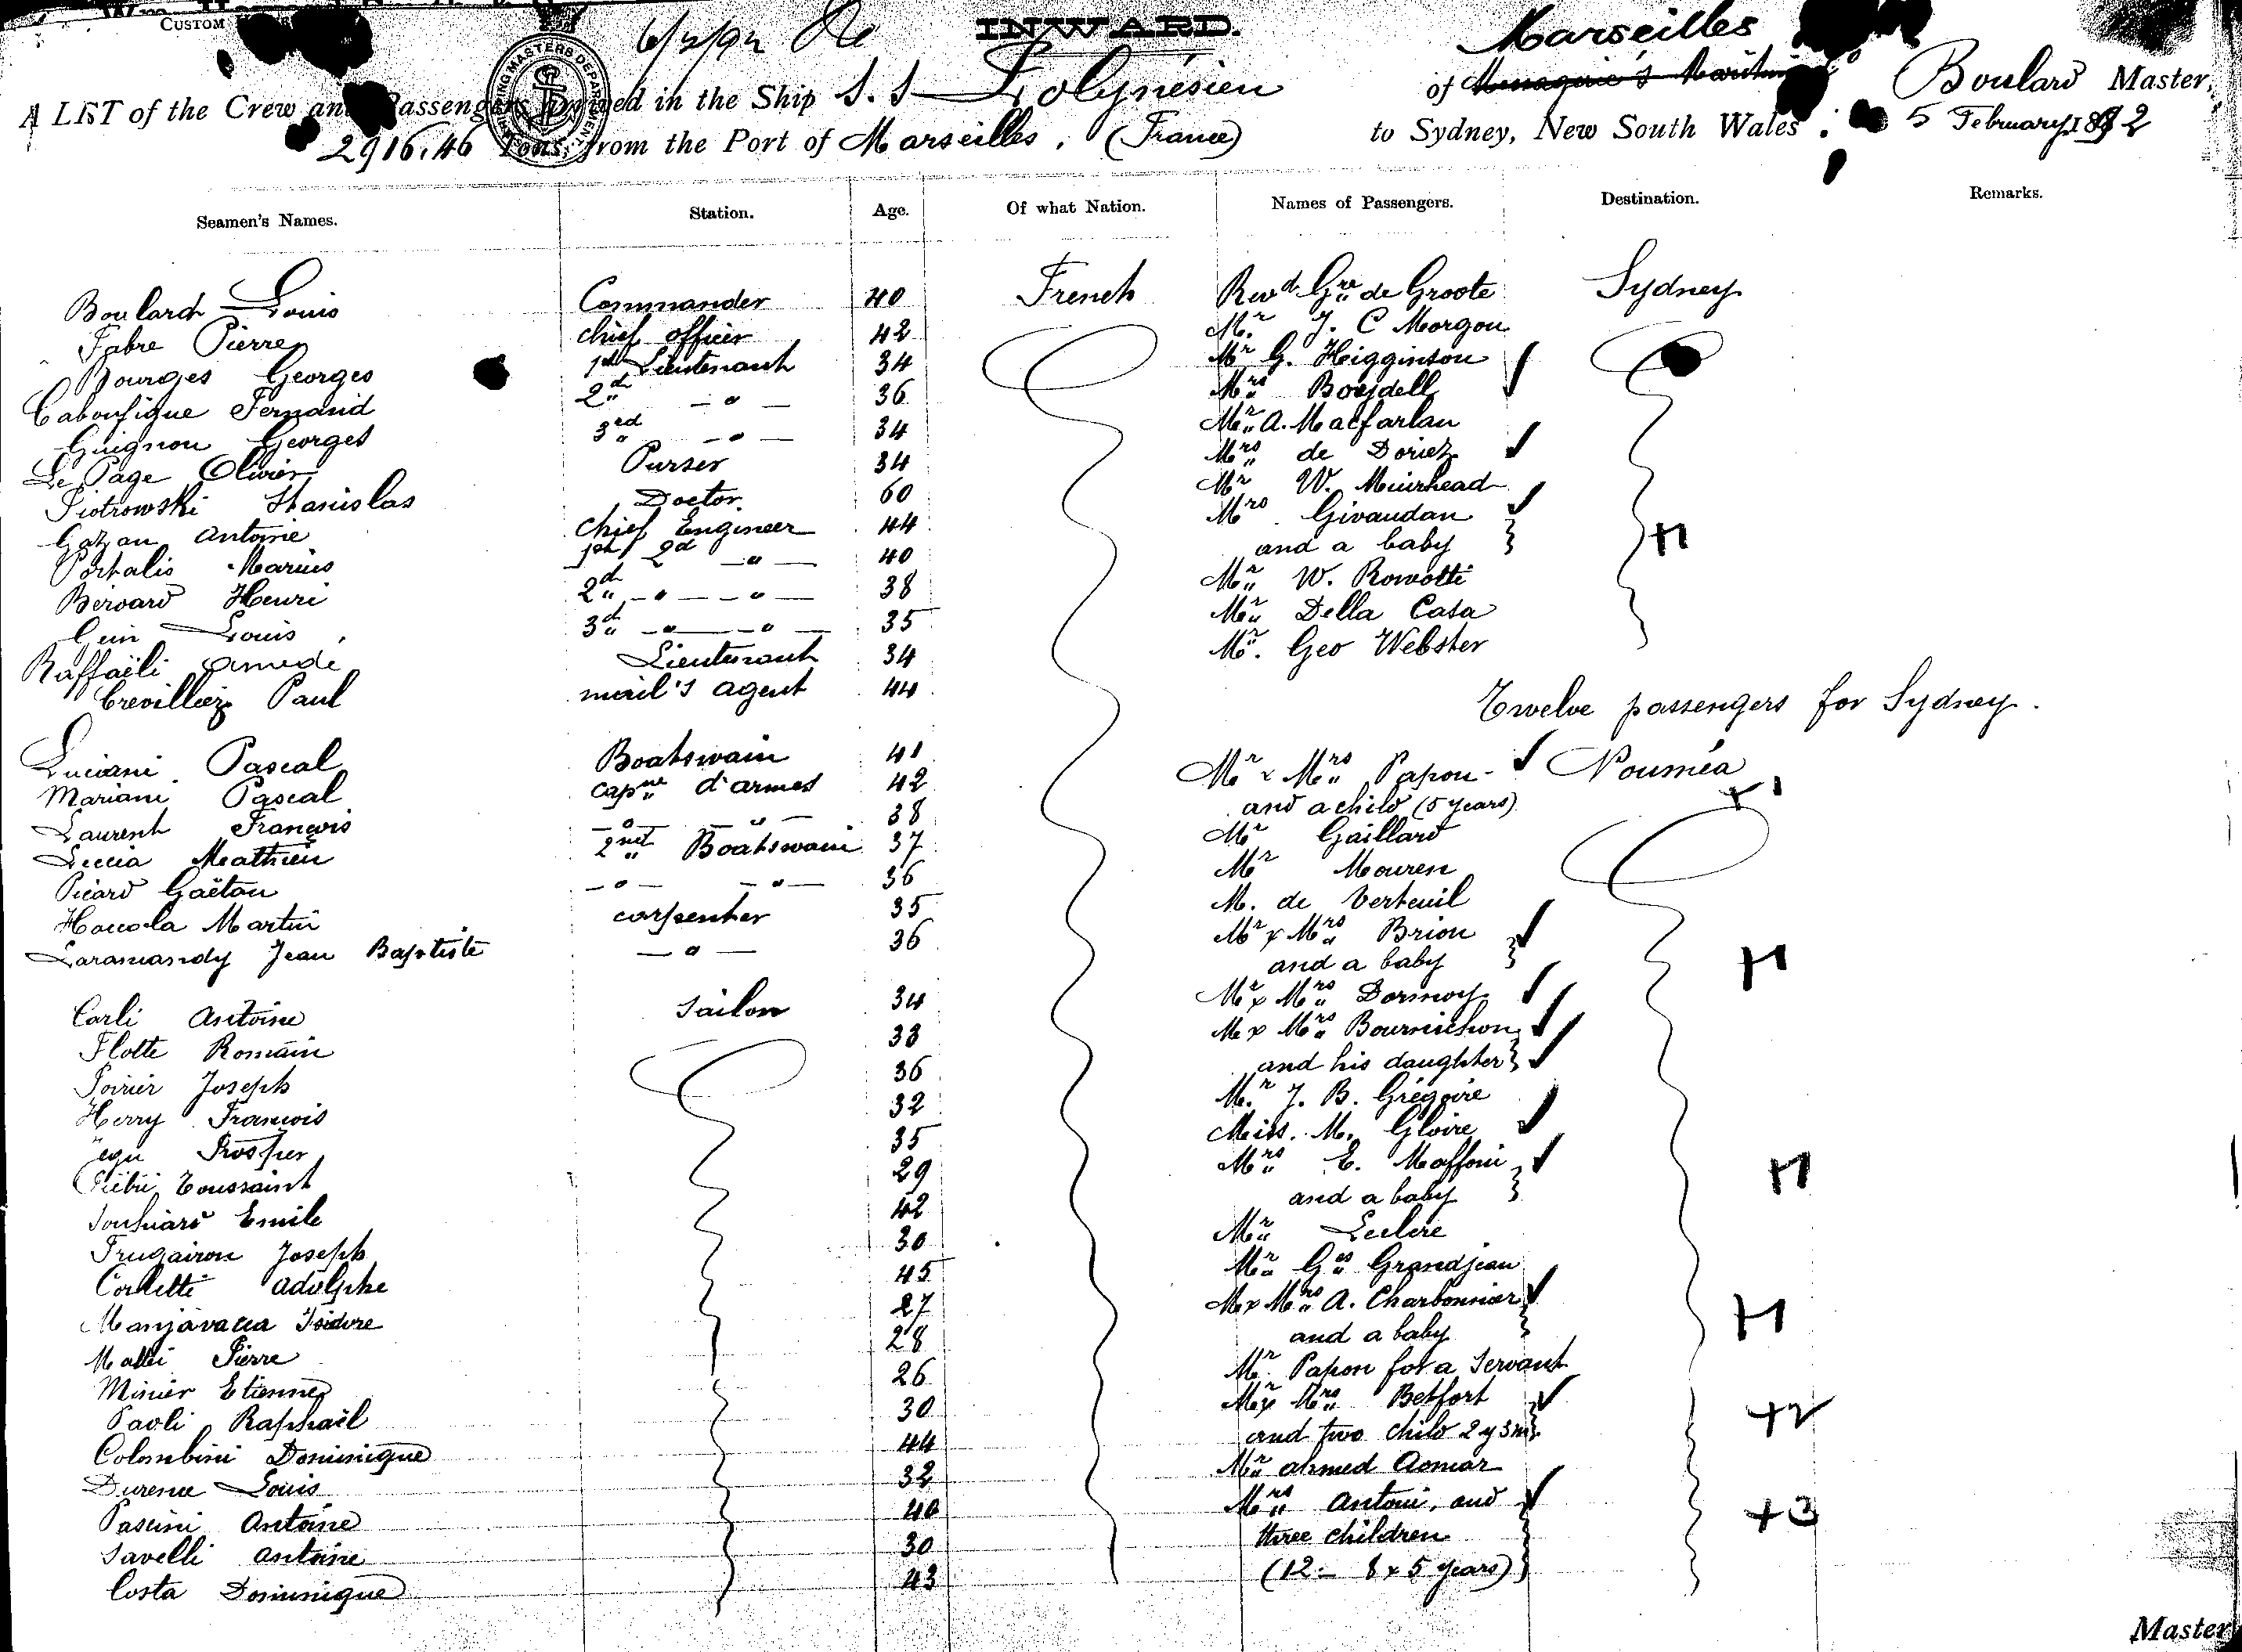 CUSTOM
6/2/92
INWARD.
Marseilles
A LIST of the Crew and Passengers arrived in the Ship S. S. Polynésien of Messagerie's Boulard Master,
2916.46 Tons, from the Port of Marseilles, (France) to Sydney, New South Wales 5 February 1892
SHIPPING MASTERS DEPARTMENT
Seamen's Names. Station. Age. Of what Nation. Names of Passengers. Destination. Remarks.
Boulard Louis Commander 40 French Revd Gre de Groote Sydney
Fabre Pierre chief officer 42 Mr J. C Morgon
Bourges Georges 1st Lieutenant 34 Mr G. Higginson
Caboufigue Fernand 2d — " — 36 Mrs Boydell
Guignon Georges 3rd — " — 34 Mr A. Macfarlan
Le Page Olivier Purser 34 Mrs de Doriez
Piotrowski Stanislas Doctor 60 Mr W. Muirhead
Gazan Antoine Chief Engineer 44 Mrs Givaudan
Portalis Marius 1st 2d — " — 40 and a baby H
Berard Henri 2d — " — — " — 38 Mr W. Rowotti
Guin Louis 3d — " — — " — 35 Mr Della Casa
Raffaëli Amedé Lieutenant 34 Mr. Geo Webster
Crevilliez Paul mail's agent 44 Twelve passengers for Sydney.
Luciani Pascal Boatswain 41 Mr & Mrs Papon Nouméa
Mariani Pascal capne d'armes 42 and a child (5 years) + 1
Laurent François — " — — " — 38 Mr Gaillard
Leccia Mathieu 2nd Boatswain 37 Mr Mouren
Picard Gaëtan — " — — " — 36 M. de Verteuil
Martin carpenter 35 Mr & Mrs Brion
Laramandy Jean Baptiste — " — 36 and a baby H
Carli Antoine Sailor 34 Mr & Mrs Dormoy
Flotte Romain 33 M & Mrs Bournichon
Poirier Joseph 36 and his daughter
Herry François 32 Mr J. B. Grégoire
Prosper 35 Miss. M. Gloire
Piétri Toussaint 29 Mrs E. Maffoni
Emile 42 and a baby H
Frugairon Joseph 30 Mr Leclere
Colletti Adolphe 45 Mr Ges Grandjean
Manjavacca Isidore 27 M & Mrs A. Charbonnier
Mattei Pierre 28 and a baby H
Minier Etienne 26 Mr Papon for a servant
Paoli Raphaël 30 Mr & Mrs Belfort
Colombini Dominique 44 and two child 2 y 3 m +2
Durence Louis 32 Mr ahmed Aomar
Pascini Antoine 40 Mrs Antoni, and
Savelli Antoine 30 three children +3
Costa Dominique 43 (12 – 8 & 5 years)
Master